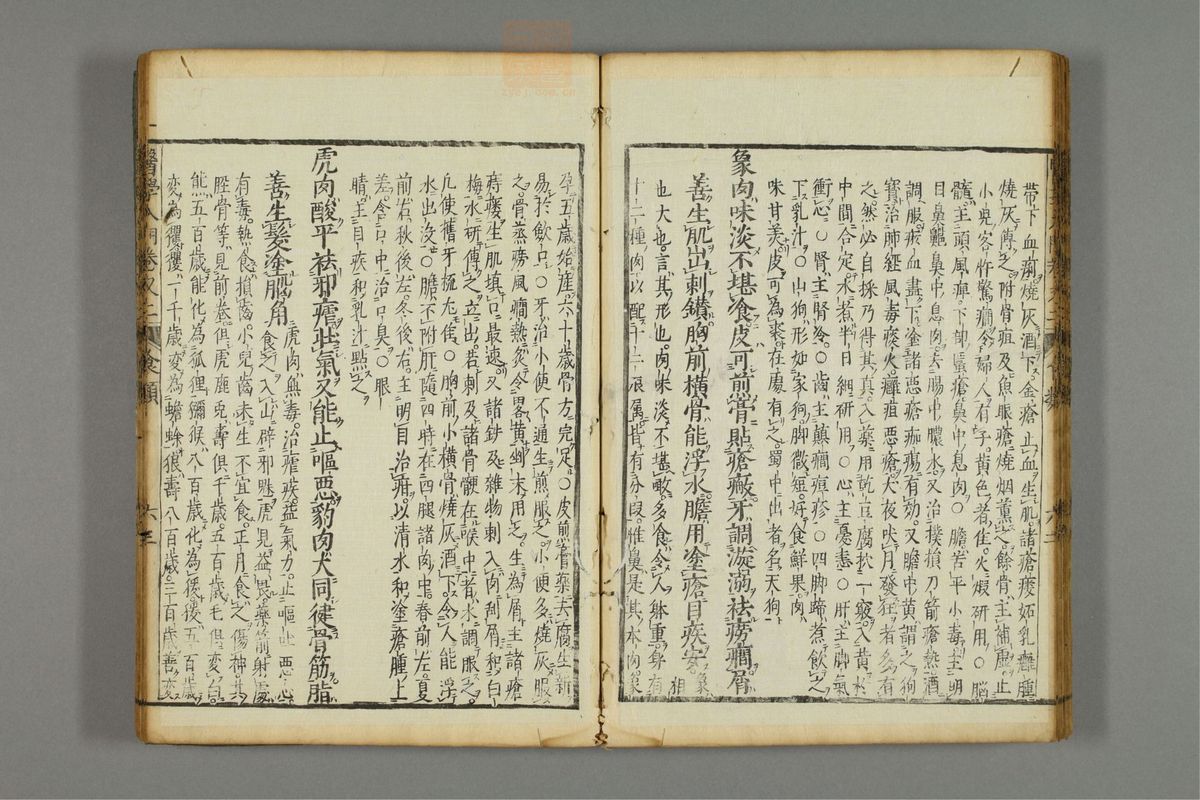 帶下血崩燒灰酒下金瘡止血生肌諸瘡瘻妬乳癰腫
燒灰傅之附骨疽及魚眼瘡燒烟薰之餘骨主補虛止
小兒客忤驚癇令婦人有子黃色者佳火煆研用○腦
髓主頭風痺下部䘌瘡鼻中息肉○膽苦平小毒主明
目鼻齆鼻中息肉去腸中膿水又治撲損刀箭瘡熱酒
調服瘀血盡下塗諸惡瘡痂瘍有効又膽中黃謂之狗
寶治肺經風毒痰火癰疽惡瘡犬夜吠月發狂者多有
之然必自採乃得其真入藥用乾豆腐挖一竅入黃於
中間合定水煮半日細研用○心主憂恚○肝主脚氣
衝心○腎主腎冷○齒主癲癇痘疹○四脚蹄煮飲之
下乳汁○山狗形如家狗脚微短好食鮮果肉
味甘美皮可為裘在處有之蜀中出者名天狗
象肉味淡不堪食皮可煎膏貼瘡敝牙調漩溺祛癆癇屑
善生肌出刺鑽胸前橫骨能浮水膽用塗瘡目疾安象
也大也言其形也肉味淡不堪噉多食令人躰重身有
十二種肉以配十二辰属皆有分段惟鼻是其本肉象
孕五歲始産六十歲骨方完足○皮煎膏藥去腐生新
易於斂口○牙治小便不通生煎服之小便多燒灰服
之骨蒸癆風癇熱炙令畧黃剉末用之生為屑主諸瘡
痔瘻生肌填口最速又諸鉄及雜物刺入肉刮屑和白
梅水研傅之立出若刺及諸骨骾在喉中者水調服之
凡使舊牙梳尤佳○胸前小橫骨燒灰酒下令人能浮
水出沒○膽不附肝而四時在四腿諸肉中春前左夏
前右秋後左冬後右主明目治疳以清水和塗瘡腫上
差令口中治口臭○眼
睛主目疾和乳汁點之
虎肉酸平祛邪瘧壯氣又能止嘔惡豹肉犬同健骨筋脂
善生髮塗肌角虎肉無毒治瘧疾益氣力止嘔吐惡心
食之入山辟邪魅虎見益畏藥箭射處
有毒熱食損齒小兒齒未生不宜食正月食之傷神其
脛骨等見前卷但虎鹿兎壽俱千歲五百歲毛俱變白
能五百歲能化為狐狸獼猴八百歲化為猨猨五百歲
變為玃玃一千歲變為蟾蜍狼壽八百歲三百歲善變
醫學入門卷次二 食類 六三